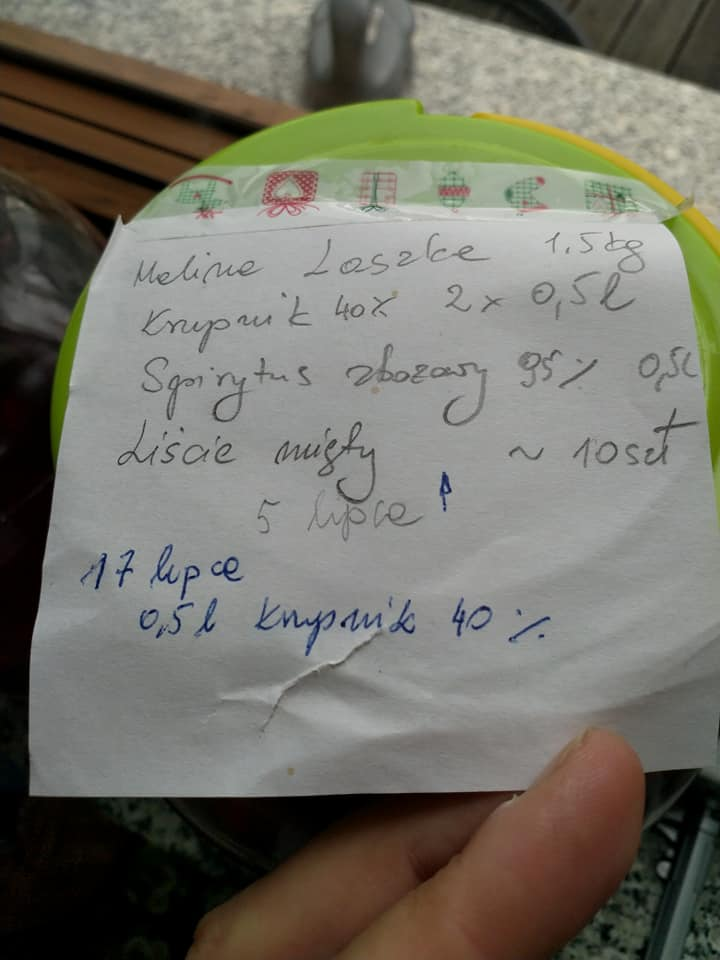 Malina Laszka 1,5kg
Krupnik 40% 2x 0,5l
Spirytus zbożowy 95% 0,5l
Liście mięty ~ 10szt
5 lipca ↑
17 lipca
0,5l Krupnik 40%